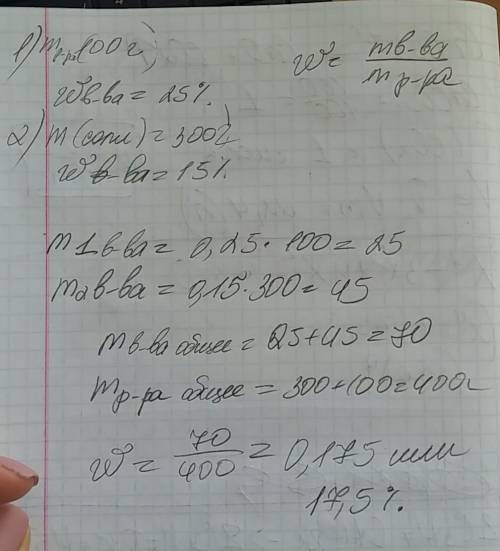 1) mр-ра 100г,
ω = mв-ва / mр-ра
ωв-ва = 25%.
2) m(сопл) = 300г
ωв-ва = 15%
m1в-ва = 0,25 · 100 = 25
m2в-ва = 0,15 · 300 = 45
mв-ва общее = 25+45 = 70
mр-ра общее = 300+100=400г
ω = 70 / 400 = 0,175 или
17,5%.